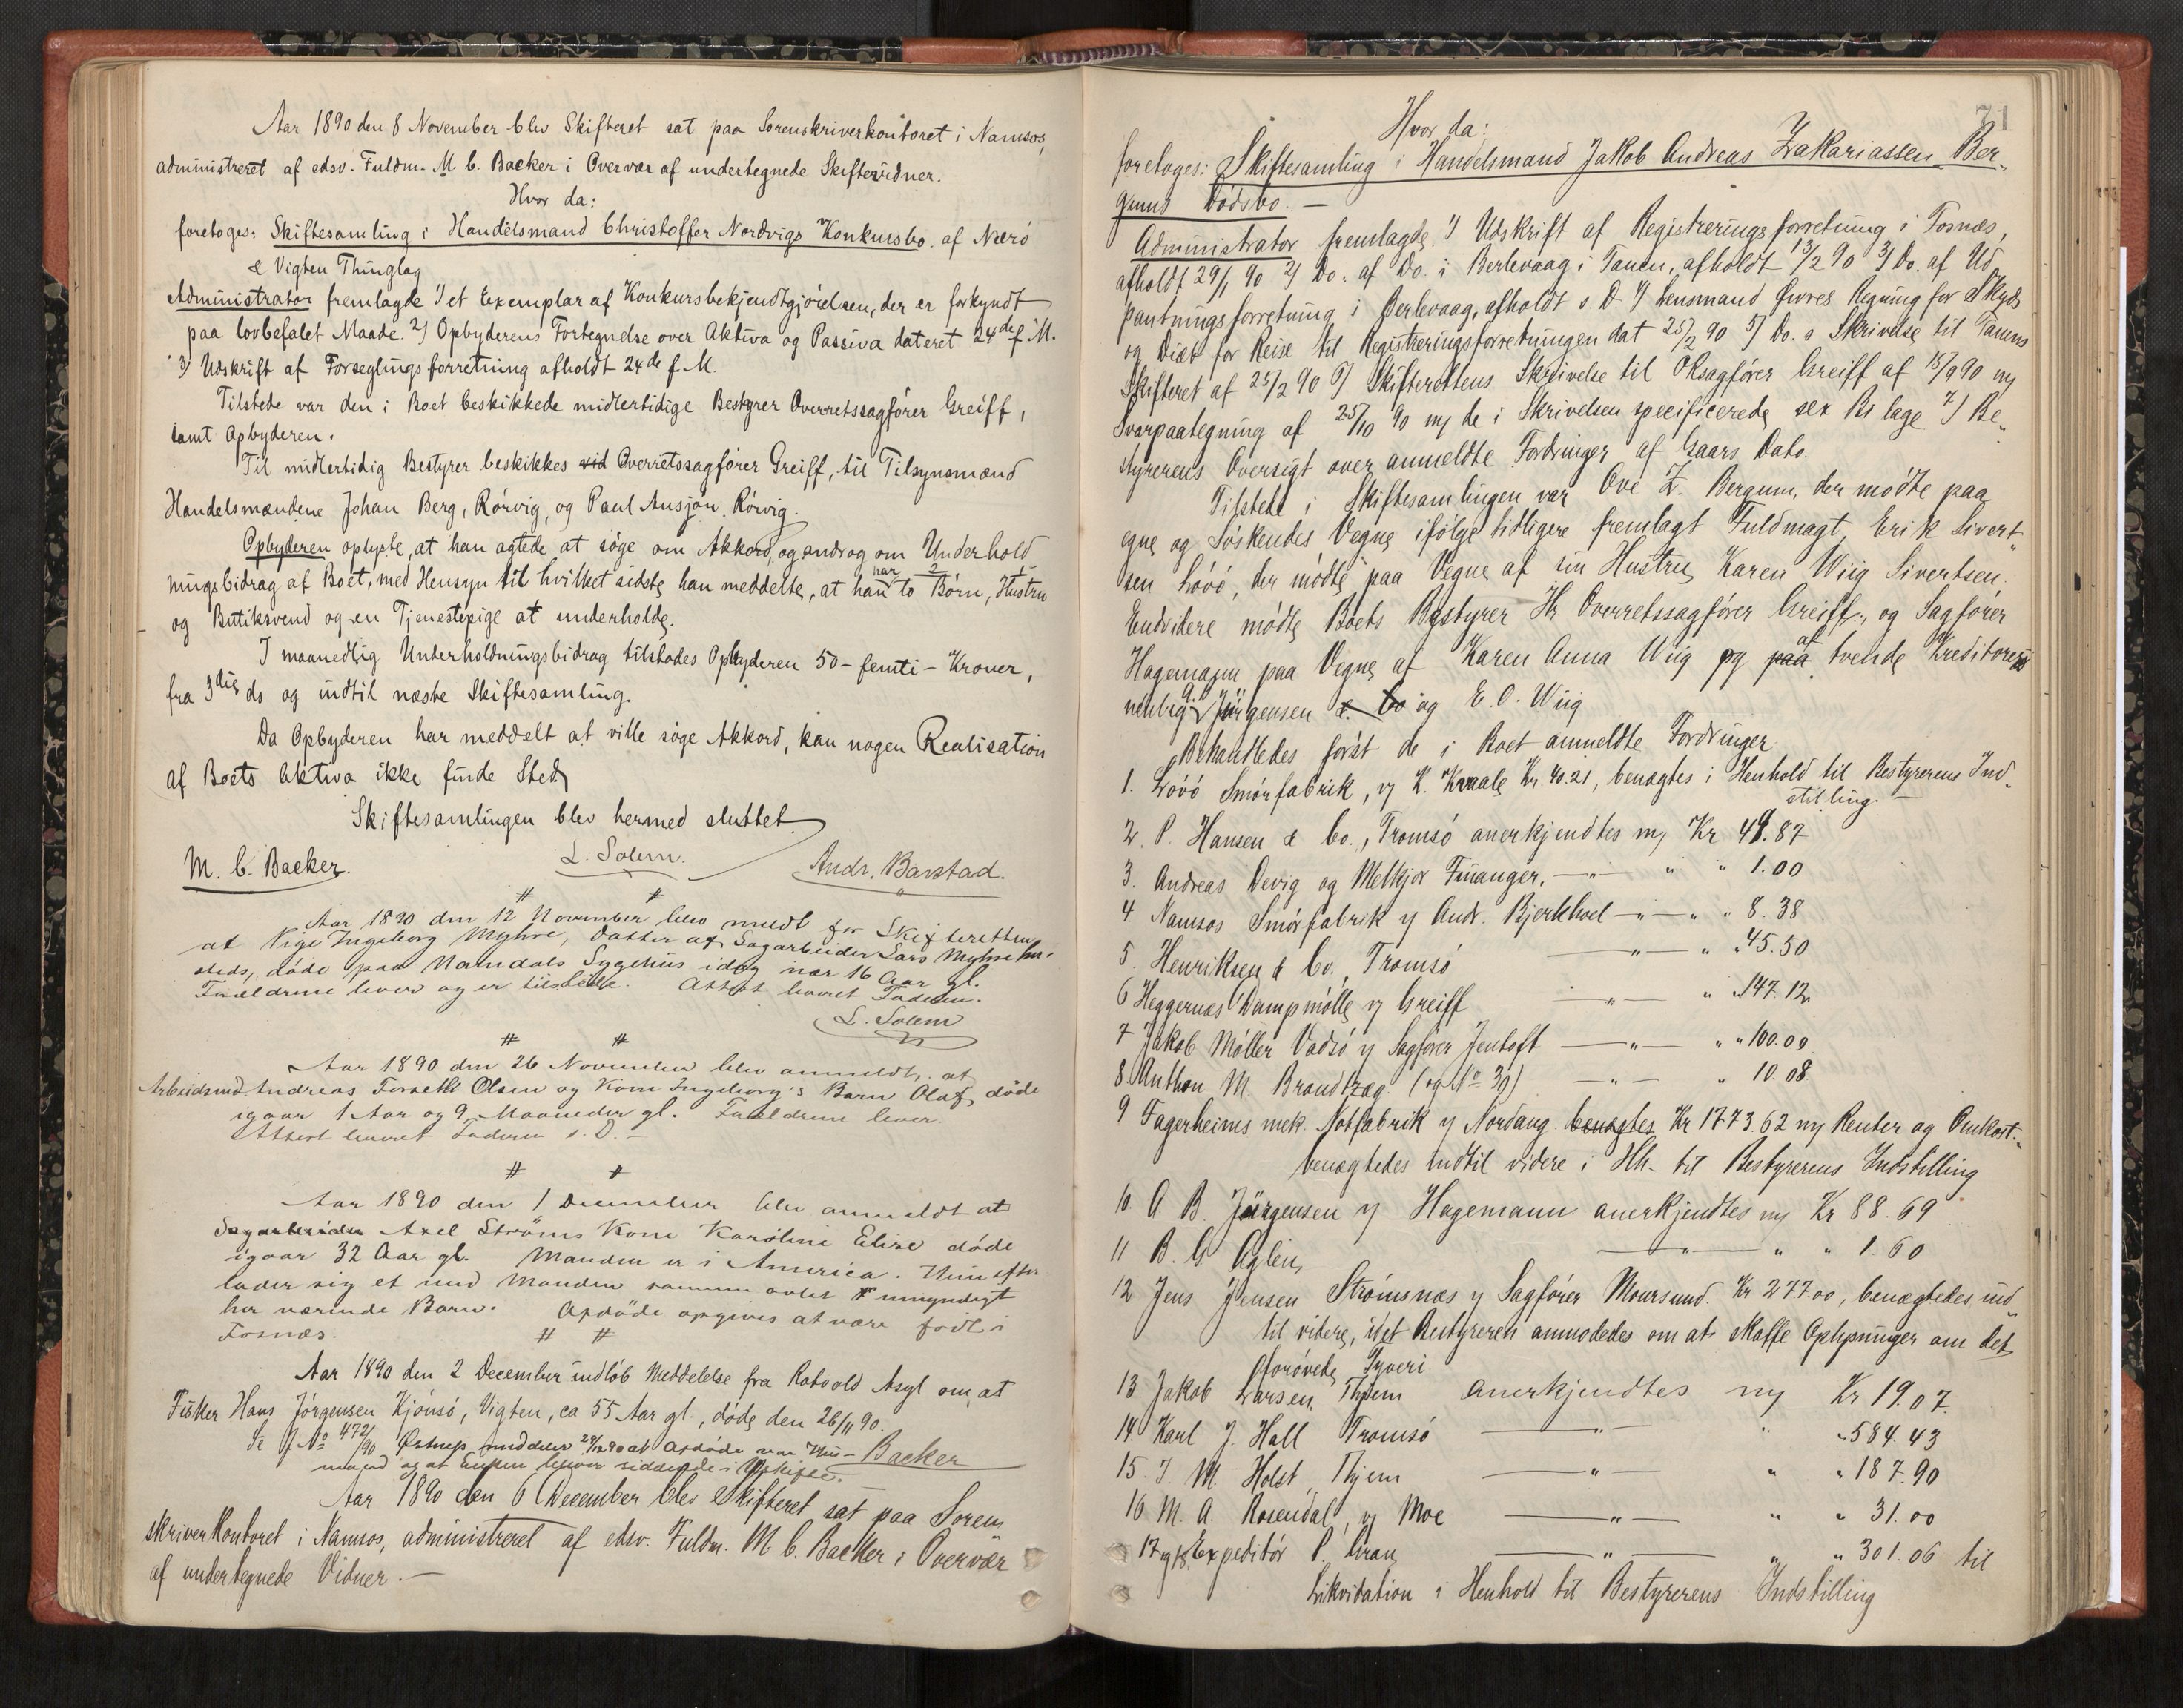 Aar 1890 den 8 November blev Skifteret sat paa Sorenskriverkontoret i Namsos,
administreret af edsv. Fuldm. M. C. Backer i Overvær af undertegnede Skiftevidner.
Hvor da:
foretoges: Skiftesamling i Handelsmand Christoffer Nordvigs Konkursbo af Nærö
& Vigten Thinglag
Administrator fremlagde 1) et Exemplar af Konkursbekjendtgjörelsen, der er forkyndt
paa lovbefalet Maade. 2) Opbyderens Fortegnelse over Aktiva og Passiva dateret 24de f. M.
3) Udskrift af Forseglingsforretning afholdt 24de f. M.
Tilstede var den i Boet beskikkede midlertidige Bestyrer Overretssagförer Greiff,
samt Opbyderen.
Til midlertidig Bestyrer beskikkes vid Overretssagförer Greiff, til Tilsynsmænd
Handelsmændene Johan Berg, Rörvig, og Paul Ansjön, Rörvig.
Opbyderen oplyste, at han agtede at söge om Akkord, og androg om Underhold
ningsbidrag af Boet, med Hensyn til hvilket sidste han meddelte, at han har to 2 Börn, Hustru
og Butiksvend og en Tjenestepige at underholde.
I maanedlig Underholdningsbidrag tilstodes Opbyderen 50 - femti - Kroner,
fra 3die ds og indtil næste Skiftesamling.
Da Opbyderen har meddelt at ville söge Akkord, kan nogen Realisation
af Boets Aktiva ikke finde Sted,
Skiftesamlingen blev hermed sluttet
M. C. Backer. L. Solem. Andr. Barstad.
# #
Aar 1890 den 12 November blev meldt for Skifteretten
at Pige Ingeborg Myhre, Datter af Sagarbeider Lars Myhre her-
steds, döde paa Namdals Sygehus idag nær 16 Aar gl.
Forældrene lever og er tilstede. Attest leveret Faderen.
L. Solem
# #
Aar 1890 den 26 November blev anmeldt, at
Arbeidsmd. Andreas Forseth Olsen og Kone Ingeborg's Barn Olaf, döde
igaar 1 Aar og 9 Maaneder gl. Forældrene lever.
Attest leveret Faderen s. D. -
# #
Aar 1890 den 1 December blev anmeldt at
Sagarbeider Axel Ströms Kone Karoline Elise döde
igaar 32 Aar gl. Manden er i America. Hun efter
lader sig et med Manden sammen avlet umyndigt
her værende Barn. Afdöde opgives at være födt i
Fosnæs.
# #
Aar 1890 den 2 December indlöb Meddelelse fra Rotvold Asyl om, at
Fisker Hans Jörgensen Kjönsö, Vigten, ca 55 Aar gl., döde den 26/11 90.
Se J No 472/90 meddeler 29/12 90 at Afdöde var Hus- Backer
mand og at Enken lever siddende i Uskifte.
Aar 1890 den 6 December blev Skifteret sat paa Soren
skriverkontoret i Namsos, administreret af edsv. Fuldm. M C. Backer i Overvær
af undertegnede Vidner. -
71
Hvor da:
foretoges: Skiftesamling i Handelsmand Jakob Andreas Zakariassen Ber-
gums Dödsbo. -
Administrator fremlagde 1) Udskrift af Registreringsforretning i Fosnæs,
afholdt 29/1 90 2) Do. af Do. i Berlevaag i Tanen, afholdt 13/2 90 3) Do. af Ud
pantningsforretning i Berlevaag, afholdt s. D. 4) Lensmand Regning for Skyds
og Diæt for Reise til Registreringsforretningen dat 25/2 90 5) Do. s Skrivelse til Tanens
Skifteret af 25/2 90 6) Skifterettens Skrivelse til ORsagförer Greiff af 15/9 90 m/
Svarpaategning af 25/10 90 m/ de i Skrivelsen specificerede sex Bilage 7) Be-
styrerens Oversigt over anmeldte Fordringer af Gaars Dato.
Tilstede i Skiftesamlingen var Ove Z. Bergum, der mödte paa
egne og Söskendes Vegne ifölge tidligere fremlagt Fuldmagt, Erik Sivert-
sen Lövö, der mödte paa Vegne af sin Hustru Karen Wiig Sivertsen.
Endvidere mödte Boets Bestyrer Hr Overretssagförer Greiff, og Sagförer
Hagemann paa Vegne af Karen Anna Wiig og paa af tvende Kreditorer
nemlig Jürgensen & Co og E. O. Wiig
Behandledes först de i Boet anmeldte Fordringer
1. Lövö Smörfabrik, v/ K. Kraale Kr. 40.21, benægtes i Henhold til Bestyrerens Ind-
stilling. -
2. P. Hansen & Co., Tromsö anerkjendtes m/ Kr 49.87
3. Andreas Devig og Melkjor Finanger, -"- " " 1.00
4 Namsos Smörfabrik v/ Andr. Bjerkhoel -"- " " 8.38
5. Henriksen & Co., Tromsö -"- " " 45.50
6 Heggernæs Dampmölle v/ Greiff -"- " " 147.12
7 Jakob Möller Vadsö v/ Sagförer Jentoft -"- " " 100.09
8 Anthon M. Brandtzæg (og No 30) -"- " 10.08
9 Fagerheims mek. Notfabrik v/ Nordang benægtes Kr 1773.62 m/ Renter og Omkost.-
benægtedes indtil videre i Hh. til Bestyrerens Indstilling
10. A B. Jürgensen v/ Hagemann anerkjendtes m/ Kr 88.69
11 B. G Aglen, -"- " " 1.60
12 Jens Jensen Strömsnæs v/ Sagförer Moursund. Kr 277.00, benægtedes ind-
til videre, idet Bestyreren anmodedes om at skaffe Oplysninger om det
forövede Tyveri
13 Jakob Larsen, anerkjendtes m/ Kr 19.07
14 Karl J. Hall Tromsö -"- " " 584.43
15. J. M. Holst, -"- " " 187.90
16. M. A. Rosendal, v/ Moe -"- " " 31.00
17 og 18. Expeditör P. Gran, -"- " " 301.06 til
Likvidation i Henhold til Bestyrerens Indstilling